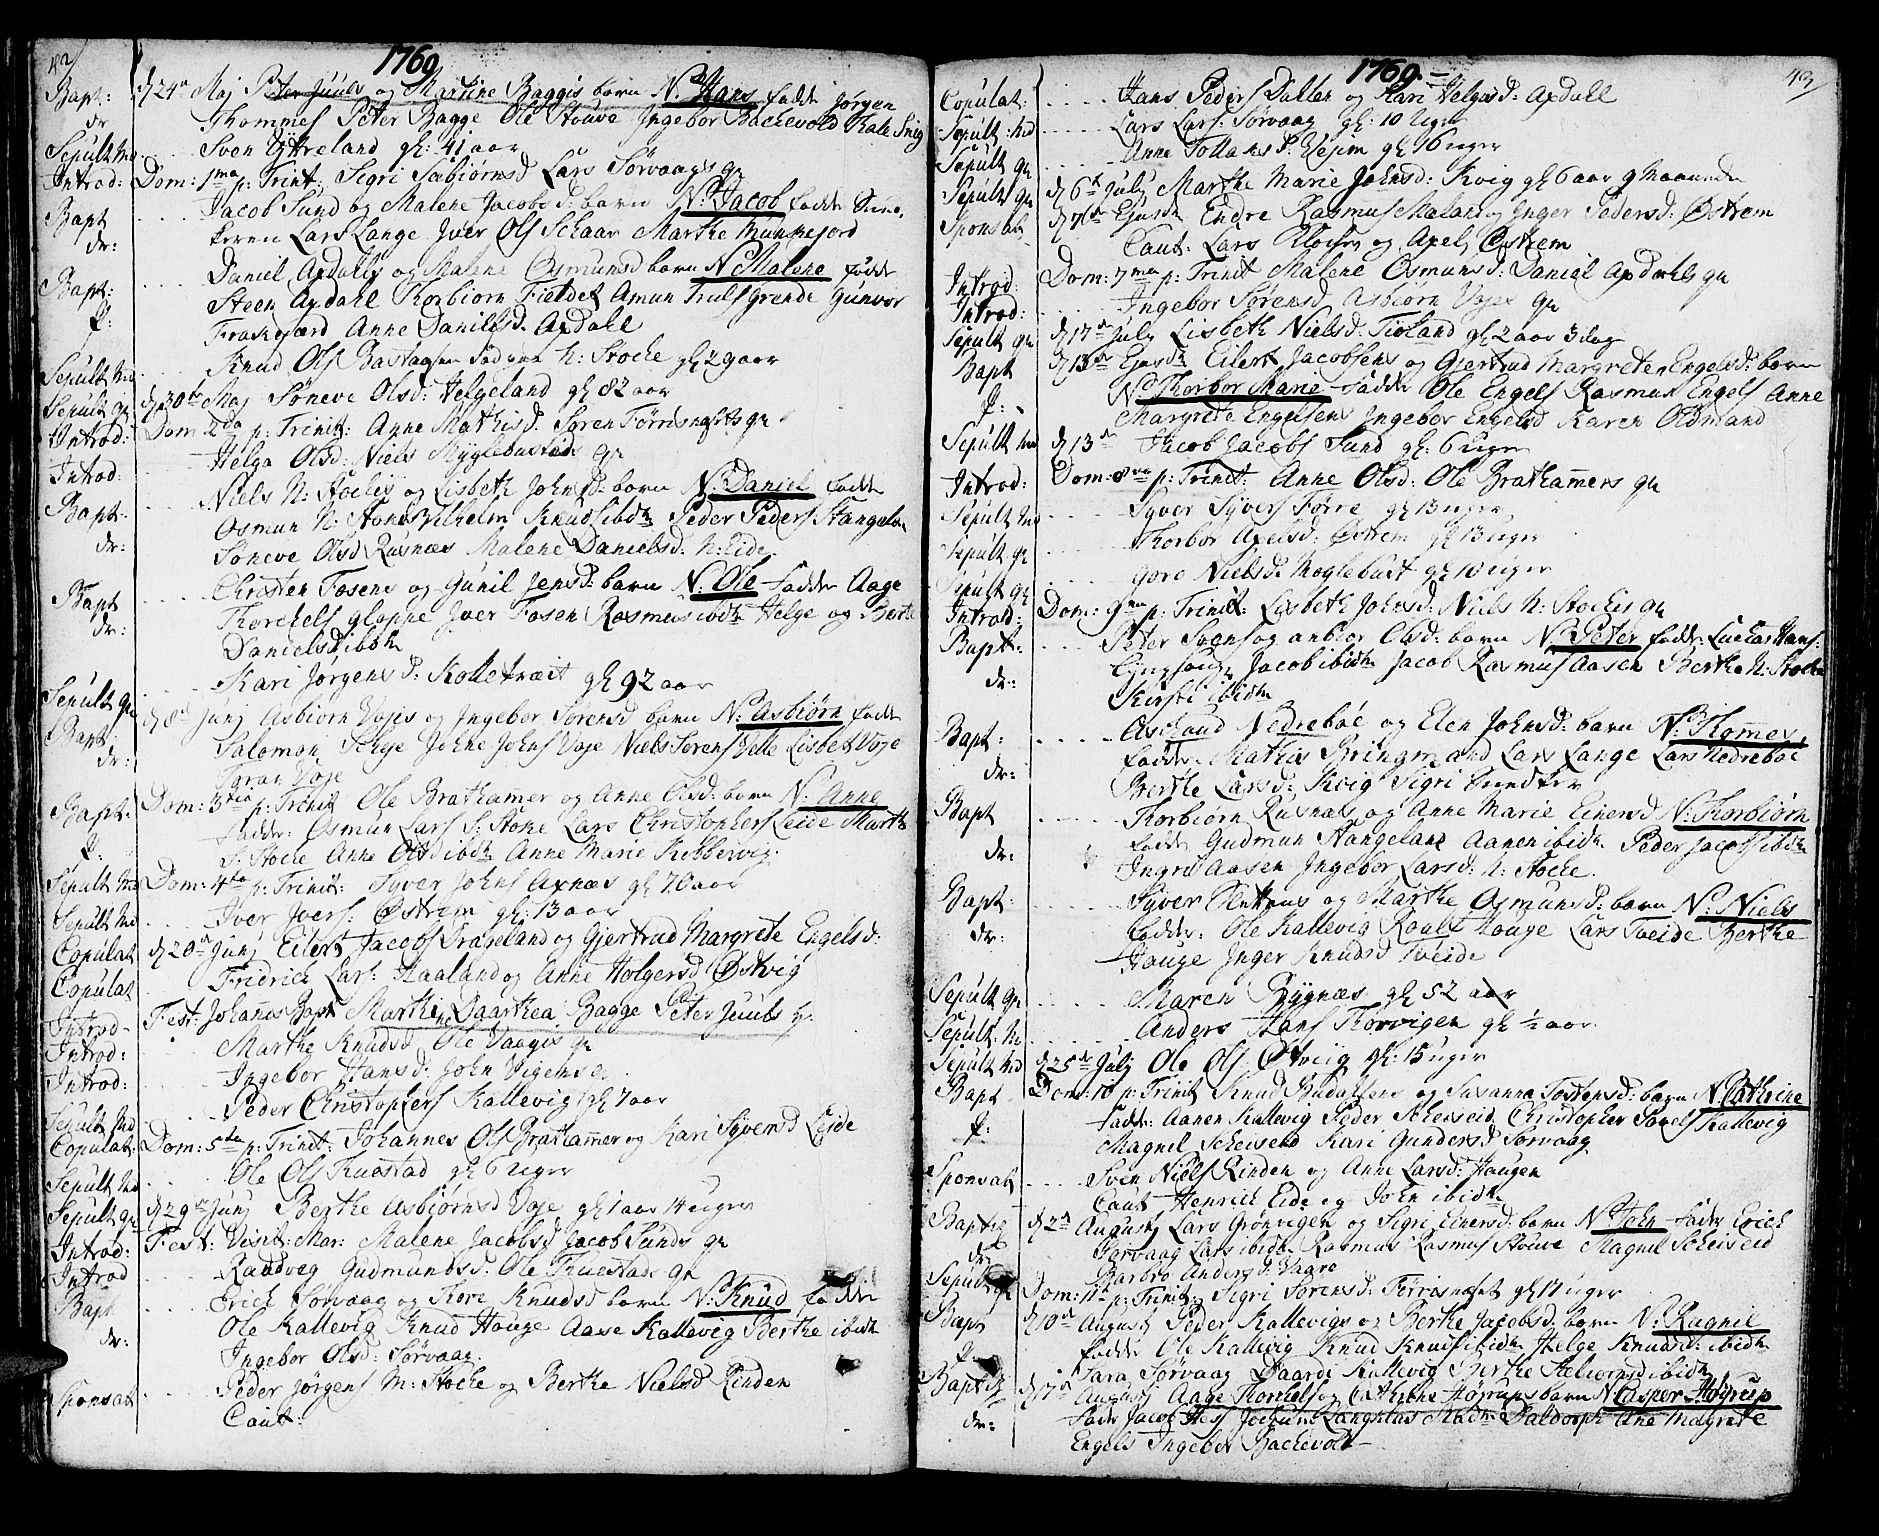 42
1769
Bapt: d 24de Maj Peter Juuls og Martine Baggis barn N. Hans fadd: Jørgen
dr Thommes Peter Bagge Ole Stouve Ingebor Backevold
Sepult Md Sven Ytreland gl: 41 aar
Introd: Dom: 1ma p: Trinit: Sigri Sabiørnsd Lars Sørvaags qv
Bapt Jacob Sund og Malene Jacobsd: barn N: Jacob fadd:
dr: Lars Lange Iver Ols Schaar Marthe Munkejord
Bapt: Daniel Axdals og Malene Osmunsd barn N Malene fadd:
Steen Axdahl Torbiørn Fieldet Amun Truls Grende Gunvor
Anne Danielsd: Axdahl
Sepult Md Knud Ols N: Stocke gl 29 aar
Sepult qv d 30te Maj Søneve Olsd: Helgeland gl 82 aar
Introd: Dom 2da p: Trinit: Anne Mathisd. Søren Førrisnæfts qv
Introd: Helga Olsd: Niels Myglebustad qv
Bapt: Niels N: Stockes og Lisbeth Johnsd: barn N. Daniel fadd:
dr: Osmun N: Stocke Vilhelm Knuds ibdm Peder Peders Stangeland
Søneve Olsd Rusnæs Malene Danielsd: N: Eide
Bapt Christen Fosens og Gunil Jensd: barn N: Ole fadd: Aage
dr: Thorckels gloppe Iver Fosen Rasmus ibdm Helge og Berte
Danielsd ibdm
Sepult qv Kari Jørgensd: Kolletvæit gl 92 aar
Bapt: d 8de Junj Asbiørn Vojes og Ingebor Sørensd barn N: Asbiørn fadd:
dr: Salomon Johne Johns Voje Niels Sørens Lisbet Voje
Voje
Bapt: Dom: 3tia p: Trinit Ole Brathamer og Anne Olsd: barn N: Anne
fadd: Osmun Lars S: Stoke Lars Christophers Leide Marthe
S: Stocke Anne ibdm Anne Marie
Sepult Md Dom: 4ta p: Trinit: Syver Johns Axnæs gl 70 aar
Sepult Md Iver Ivers: Østrem gl: 13 aar
Copulat d 20de Junj Eilert Jacobs Drageland og Gjertrud Margrete Engelsd:
Copulat Fridrich Lars: Haaland og Anne Holgersd Østvig
Introd: Fest: Johannes Bapt Marthe Daarthea Bagge Peter Juuls
Introd: Marthe Knudsd Ole Vaagis qv
Introd: Ingebor Hansd: John Vigens qv
Sepult Md Peder Christophers Kallevig gl 7 aar
Copulat: Dom: 5ta p: Trinit: Johannes Ols Brathammer og Kari Syversd Leide
Sepult Md Ole Ols Tuastad gl 6 uger
Sepult qv d 29de Junj Berthe Asbiørnsd Voje gl 1 aar 14 uger
Introd: Fest: Visit: Mar: Malene Jacobsd Jacob Sunds qv
Introd Raadveg Gudmundsd. Ole Tuestads qv
Bapt Erich Sørvaag og Tore Knudsd barn N: Knud fadd:
dr: Ole Kallevig Knud Houge Aase Kallevig Berthe ibidm
Ingebor Olsd: Sørvaag
Sponsat Peder Jørgens M: Stocke og Berthe Nielsd Rinden
Caut:
43
1769
Copulat: Hans Peders Dallen og Kari Helgesd: Axdall
Sepult: Md Lars Lars: Sørvaag gl: 10 Uger
Sepult qv Anne gl 16 uger
Sepult qv d 6te July Marthe Marie Johnsd: Kvig gl 6 aar 9 Maaneder
Sponsat d 7de Ejusdm Endre Rasmus Maland og Inger Pedersd: Østrem
Caut: Lars og Axel Østrem
Introd: Dom: 7ma p: Trinit Malene Osmunsd: Daniel Axdahls qv
Introd: Ingebor Sørensd Asbiørn Vojes qv
Sepult qv d 17de July Lisbeth Nielsd: Fioland gl 2 aar 3 dag
Bapt d 13de Ejusdm Eilert Jacobsens og Giertrud Margrete Engelsd: barn
N Thorbor Marie fadd: Ole Engels Rasmus Engels Anne
Margrete Engelsens Ingebor Engelsd Karen Oldmand
Sepult Md d 13de Jacob Jacobs Sund gl: 6 Uger
Introd: Dom: 8va p: Trinit: Anne Olsd: Ole Brathamers qv
Sepult Md Syver Syvers Førre gl 13 uger
Sepult qv Thorbor Axelsd: Østrem gl 13 uger
Sepult qv Goro Nielsd Moglebust gl 10 uger
Introd: Dom: 9na p: Trinit: Lisbeth Johnsd: Niels N: Stockes qv
Bapt: Peter Svens og Anbior Olsd: barn N: Peter fadd: Luccas Hans:
dr: Jacob ibidm Jacob Rasmus Aasen Berthe N: Stocke
Kirsti ibidm
Bapt: Aschaud Nedrebøe og Elen Johnsd: barn N: Tomes,
dr: fadd: Mathis Bringmand Lars Lange Lars Nedrebøe
Berthe Larsd: Kvig Sigri
Bapt Torbiørn Rusnæs og Anne Marie Einersd N: Torbiørn
dr: fadd: Gudmun Stangeland Aanen ibidm Peder Jacobs ibidm
Ingri Aasen Ingebor Larsd: N: Stocke.
Bapt: Syver og Marthe Osmunsd: barn N: Niels
dr: fadd: Ole Kallevig Roald Houge Lars Tveide Berthe
Houge Inger Knudsd Tveide
Sepult qv Maren Bygnæs gl 52 aar
Sepult: Md Anders Hans Thorvigen gl ½ aar
Sepult Md d 25de July Ole Ols Østviig gl: 15 uger
Bapt Dom: 10 p: Trinit Knud og Susanna Tostensd: barn N Cathrine
fadd: Aanen Kallevig Peder Scheiseid Christopher Kallevig
Magnil Scheiseid Kari Gundersd Sørvaag
Sponsat Sven Niels Rinden og Anne Larsd: Haugen
Caut Henrich Eide og John ibidm
Baptiz d 2de Augustj Lars Grønvigen og Sigri Einersd: barn N John fadd: Erich
dr Sørvaag Lars ibidm Rasmus Rasmus Stouve Magnil Scheiseid
Barbro Andersd: Vaare
Sepult qv Dom: 11te p: Trinit: Sigri Sørensd: Førrisnæset gl 17 uger
Bapt d 10de Augustj Peder Kallevigs og Berthe Jacobsd: barn N: Ragnil
fadd: Ole Kallevig Knud Knuds ibidm Helge Knudsd: ibidm
Sara Sørvaag Daarde Kallevig Berthe ibidm
Baptiz d 17de Augustj Aage Thorckels og Cathrine Høyrups barn N Casper Høyrup
dr: fadd: Jacob Hess Jochum Langhlas Mad: Anna Magrete
Engels Ingebor Backevold